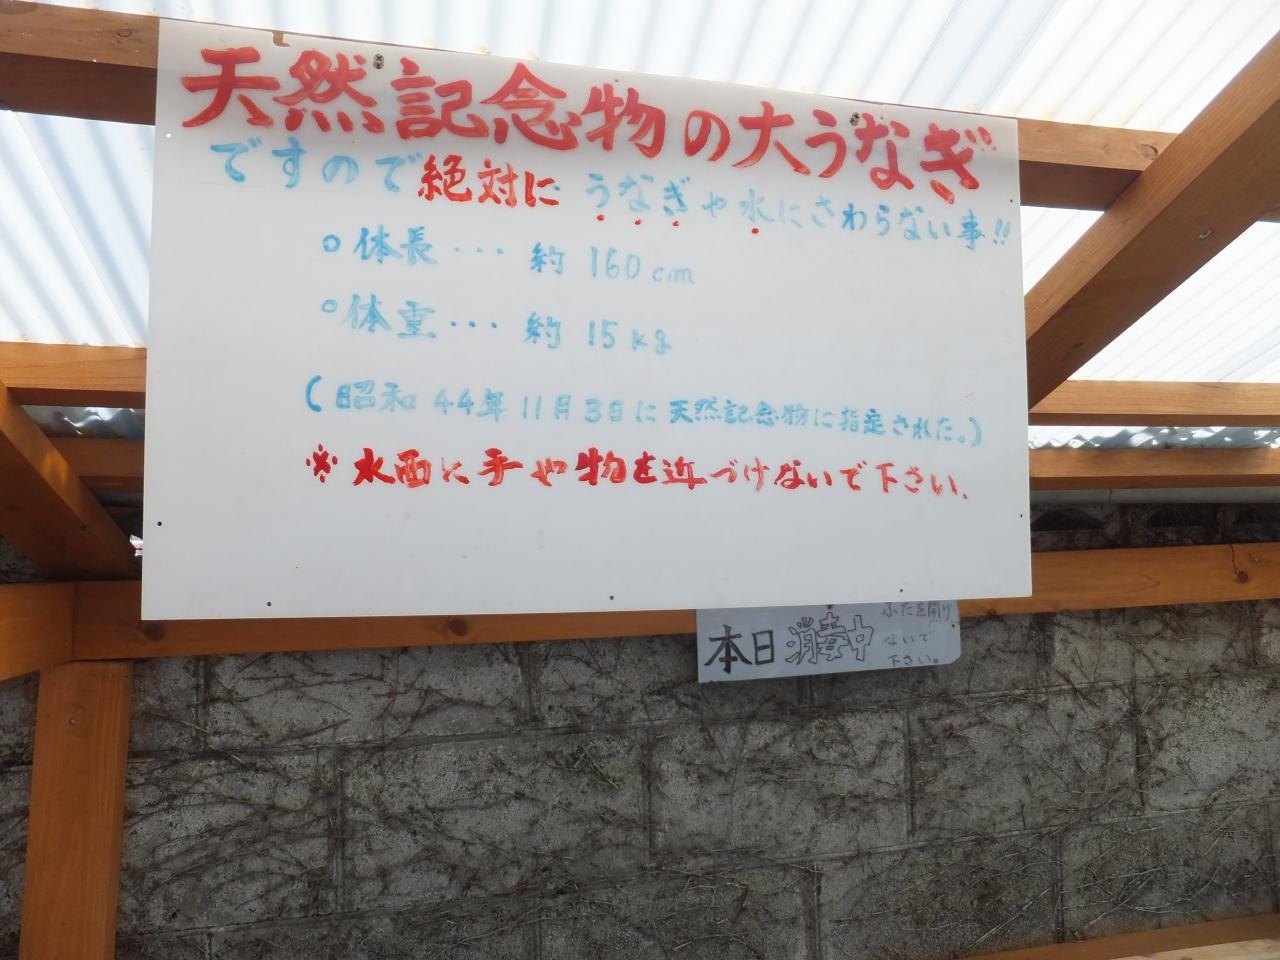 天然記念物の大うなぎ
ですので絶対にうなぎや水にさわらない事!!
○体長・・・約160cm
○体重・・・約15kg
(昭和44年11月3日に天然記念物に指定された。)
※水面に手や物を近づけないで下さい。
本日消毒中
ふたを開け
ないで
下さい。